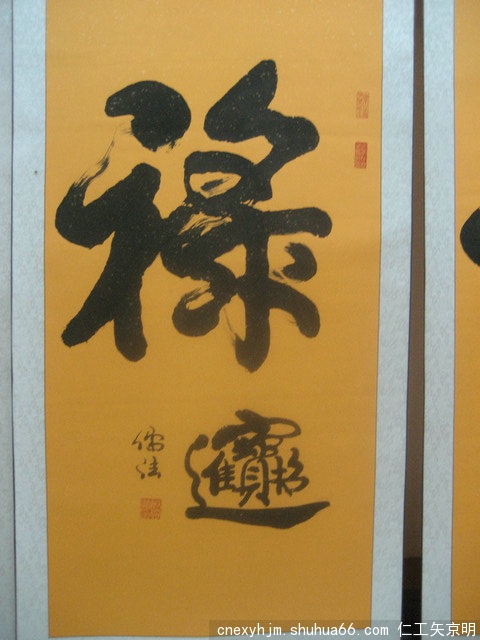 禄
招財進寶
cnexyhjm.shuhua66.com 仁工矢京明